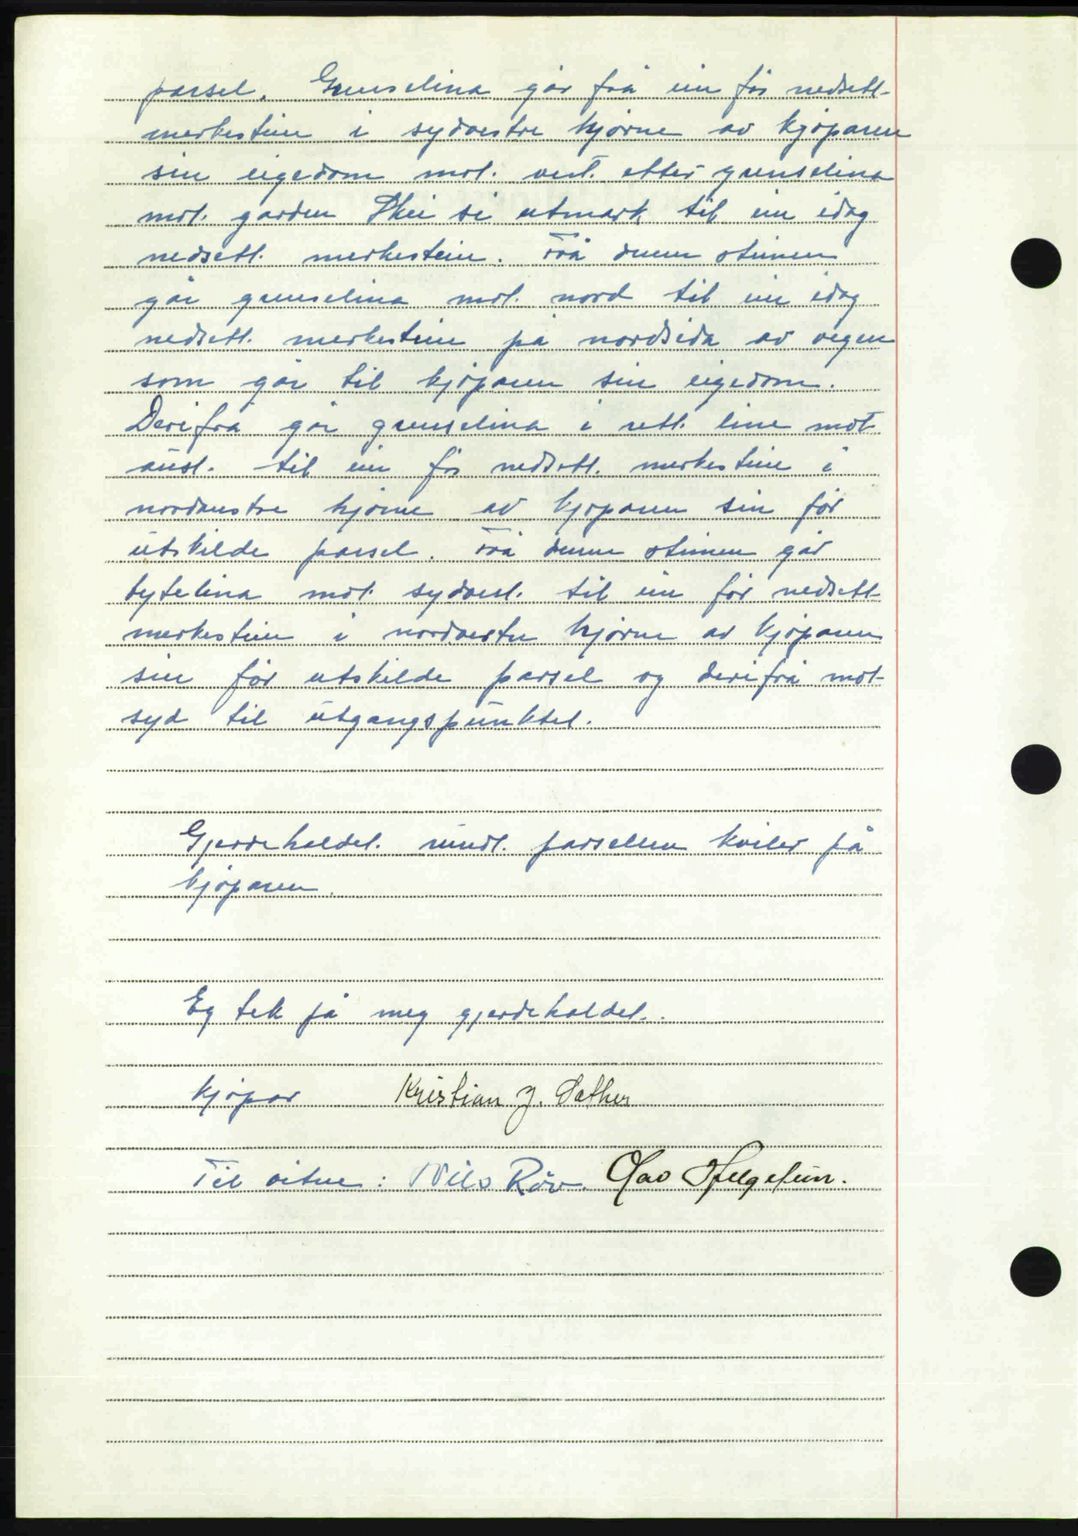 parsel. Grenselina går frå ein før nedsett
merkestein i sydvestre hjørne av kjøparen
sin eigedom mot vest etter grenselina
mot garden si utmark til ein idag
nedsett merkestein. Frå denne steinen
går grenselina mot nord til ein idag
nedsett merkestein på nordsida av vegen
som går til kjøparen sin eigedom.
Derifrå går grenselina i rett line mot
aust til ein før nedsett merkestein i
nordaustre hjørne av kjøparen sin før
utskilde parsel. Frå denne steinen går
bytelina mot sydvest til ein før nedsett
merkestein i nordvestre hjørne av kjøparen
sin før utskilde parsel og derifrå mot
syd til utgangspunktet.
Gjerdehaldet rundt parsellen kviler på
kjøparen.
Eg tek på meg gjerdehaldet.
kjøpar Kristian J. Sæther
Til vitne: Nils Röv. Olav Helgetun.